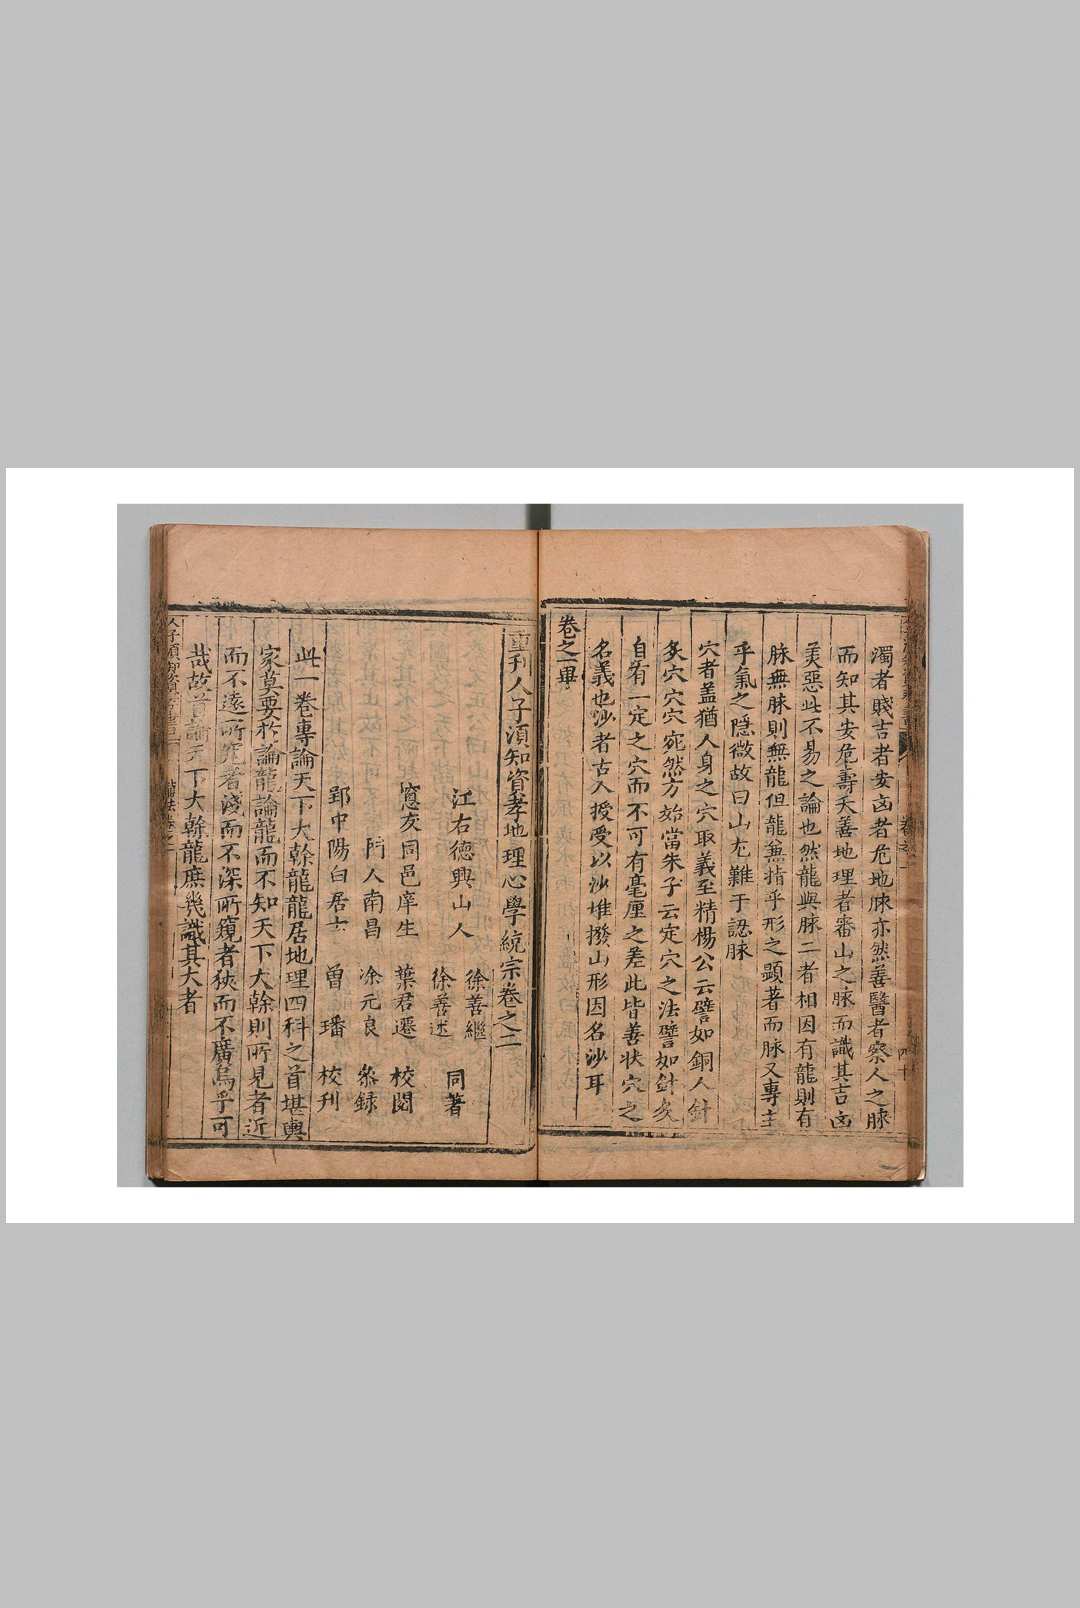 濁者賤吉者安凶者危地脉亦然善醫者察人之脉
而知其安危壽夭善地理者審山之脉而識其吉凶
美惡此不易之論也然龍與脉二者相因有龍則有
脉無脉則無龍但龍兼指乎形之顯著而脉又專主
乎氣之隱微故曰山尤難于認脉
穴者盖猶人身之穴取義至精楊公云譬如銅人針
灸穴穴穴宛然方始當朱子云定穴之法譬如針灸
自有一定之穴而不可有毫厘之差此皆善状穴之
名義也沙者古人授受以沙堆撥山形因名沙耳
卷之一畢
重刊人子須知資孝地理心學統宗卷之二
江右德興山人 徐善繼 徐善述 同著
窓友同邑庠生 葉君遷 校閱
門人南昌 涂元良 叅録
郢中陽白居士 曽璠 校刋
此一卷專論天下大幹龍龍居地理四科之首堪輿
家莫要於論龍論龍而不知天下大幹則所見者近
而不遠所究者淺而不深所窺者狹而不廣烏乎可
哉故首論天下大幹龍庶幾識其大者